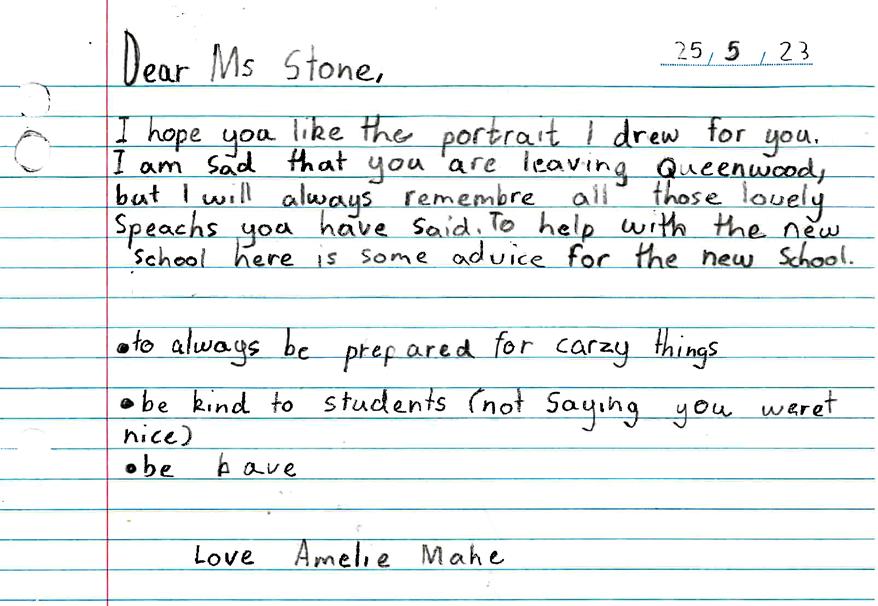 Dear Ms Stone, 25/5/23
I hope you like the portrait I drew for you.
I am sad that you are leaving Queenwood,
but I will always remembre all those lovely
Speachs you have said. To help with the new
school here is some advice for the new School.
•to always be prepared for carzy things
•be kind to students (not Saying you weret
nice)
•be bave
Love Amelie Mahe